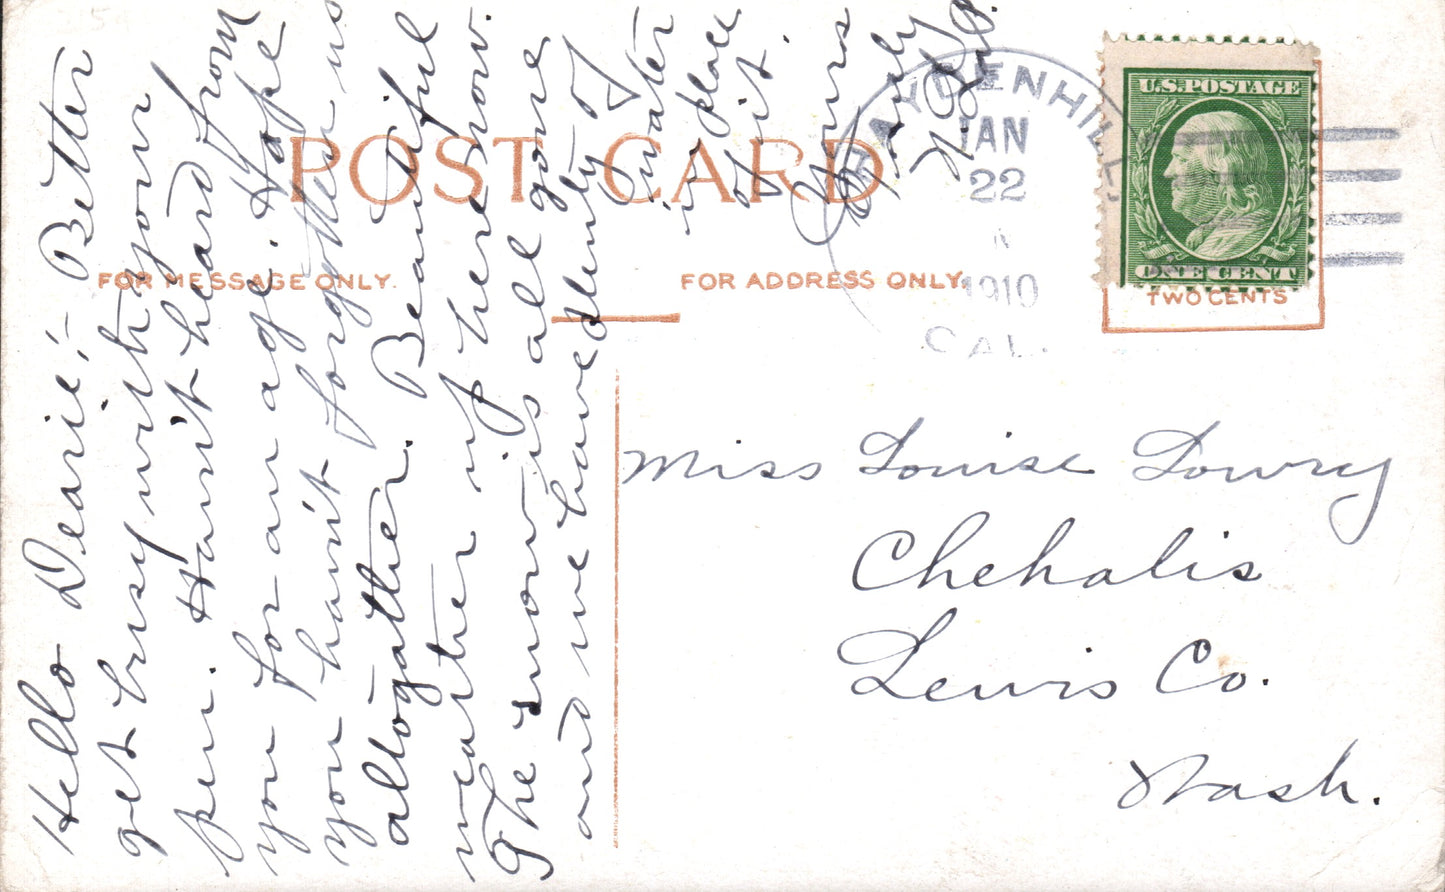 2154
POST CARD
FOR MESSAGE ONLY.
FOR ADDRESS ONLY.
HAYDENHILL
JAN
22
1910
CAL.
U.S. POSTAGE
ONE CENT
TWO CENTS
Hello Dearie:- Better
get busy with your
pen. Haven't heard from
you for an age. Hope
you havn't forgotten us
allogather. Beautiful
weather up here now.
The snow is all gone
and we have plenty of
water
in place
of it.
Yours
Miss Louise Lowry
Chehalis
Lewis Co.
Wash.